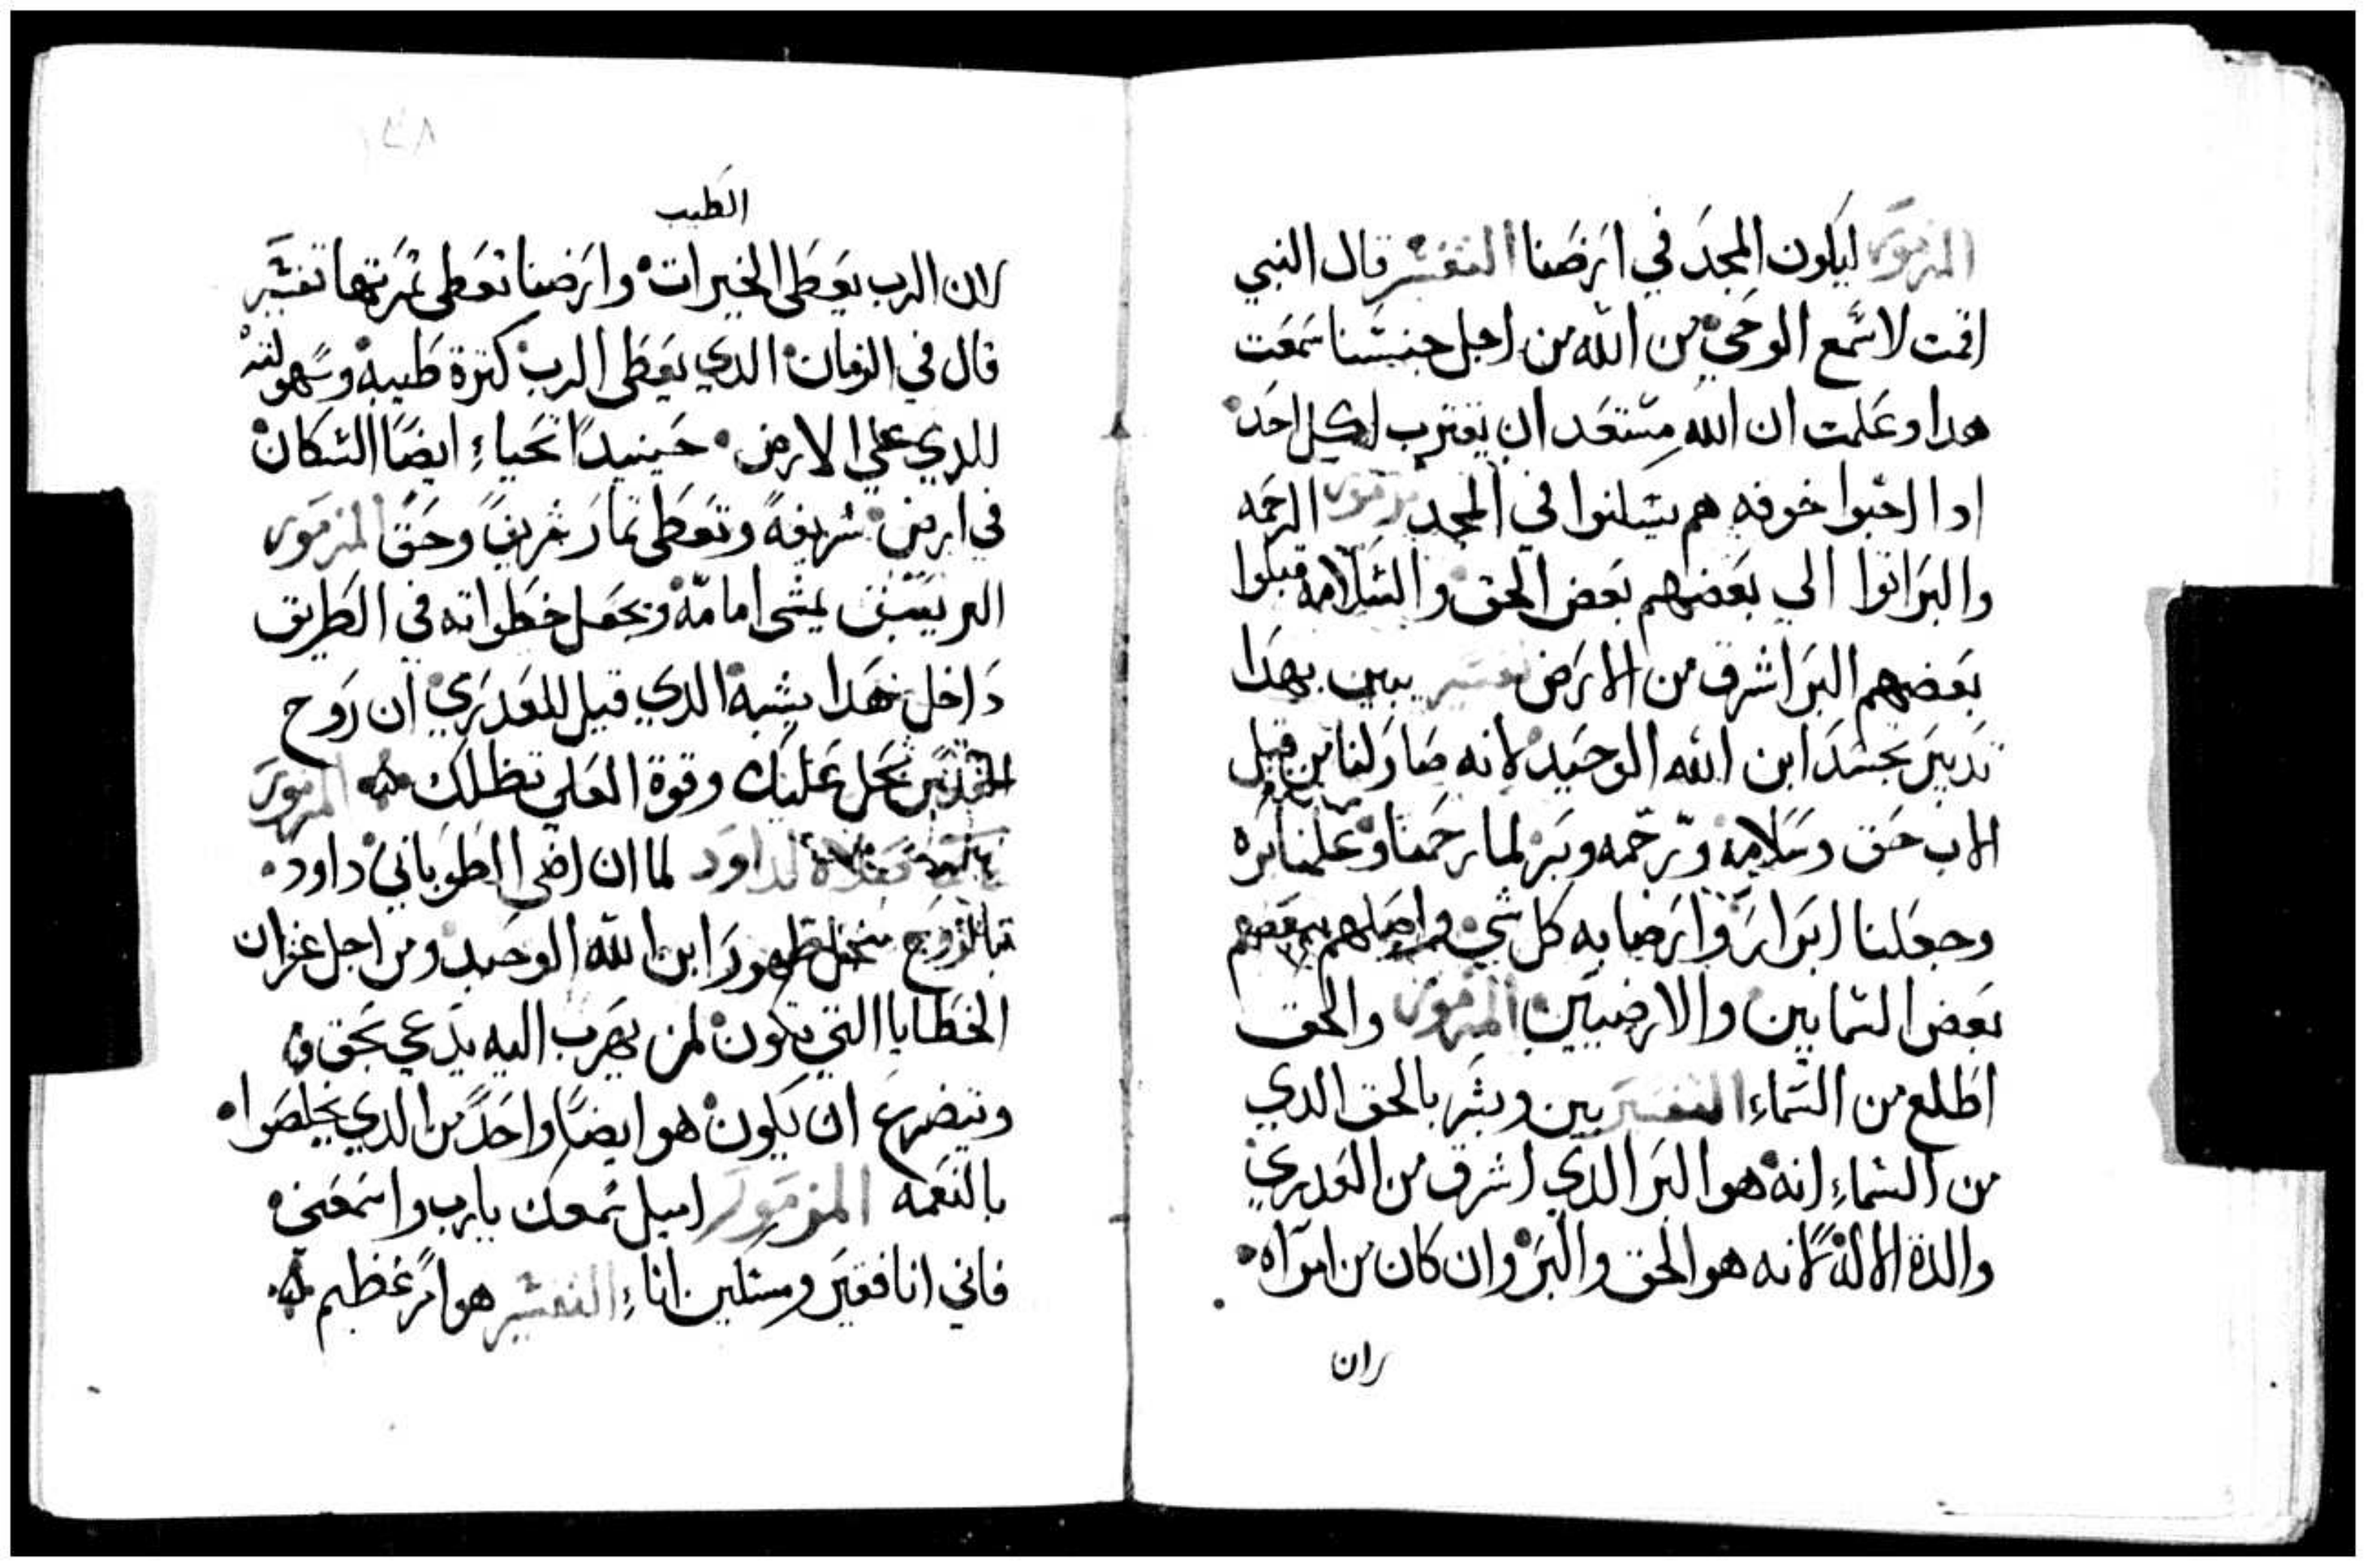 المزمور ليكون المجد في ارضنا التفسير قال النبي
اقمت لاسمع الوحي من الله من اجل جنسنا سمعت
هدا وعلمت ان الله مستعد ان يقترب لكل احد
ادا احبوا خوفه هم يسكنوا في المجد مزمور الرحمه
والبر اتوا الي بعضهم بعض الحق والسلامه قبلوا
بعضهم البر اشرق من الارض تفسير يبين بهدا
تدبير تجسد ابن الله الوحيد لانه صار لنا من قبل
الاب حق وسلامه ورحمه وبر لما رحمنا وعلمنا بره
وجعلنا ابرار وارضا به كل شي واصلهم ببعضهم
بعض السمايين والارضيين المزمور والحق
اطلع من السماء التفسير بين وبشر بالحق الدي
من السماء انه هو البر الدي اشرق من العدري
والدة الاله لانه هو الحق والبر وان كان من امراه
لان
الطيب
لان الرب يعطى الخيرات وارضنا تعطى ثمرتها تفسير
قال في الزمان الدي يعطى الرب كترة طيبه وسهولته
للدي علي الارض حينيدا تحياء ايضا السكان
في ارض شريفه وتعطى تمار شريف وحق المزمور
البر يسبق يمشى امامه ويجعل خطواته في الطريق
داخل هدا يشبه الدي قيل للعدري ان روح
القدس تحل عليك وقوة العلي تظلك المزمور
صلاة لداود لما ان اضى الطوباني داود
بالروح ظهور ابن الله الوحيد ومن اجل غفران
الخطايا التي تكون لمن يهرب اليه يدعي بحق
ويتضرع ان يكون هو ايضا واحد من الدي يخلصوا
بالنعمه المزمور اميل سمعك يارب واسمعني
فاني انا فقير ومسكين اناء التفسير هو امر عظيم